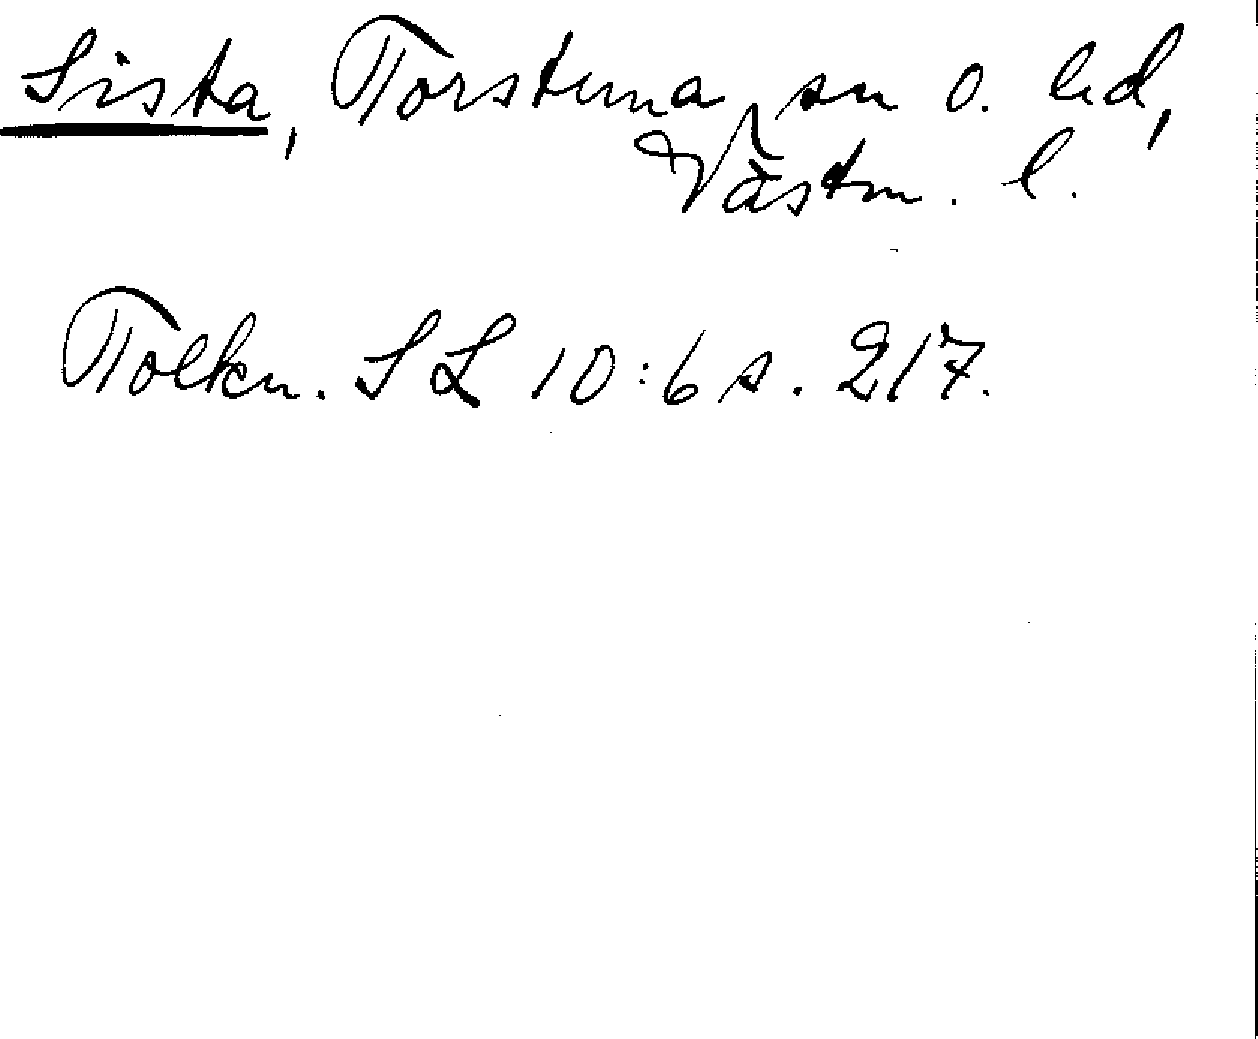 Sista, Torstuna sn o. hd,
Västm. l.
Tolkn. SL 10:6 s. 217.